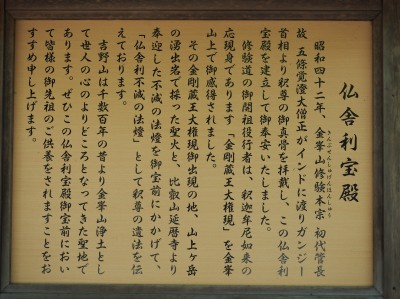 仏舎利宝殿
昭和四十二年、金峯山修験本宗 初代管長
きんぷせんしゅげんほんしゅう
故 五條覚澄大僧正がインドに渡りガンジー
首相より釈尊の御真骨を拝戴し、この仏舎利
宝殿を建立して御奉安いたしました。
修験道の御開祖役行者は、釈迦牟尼如来の
応現身であります「金剛蔵王大権現」を金峯
山上で御感得されました。
その金剛蔵王大権現御出現の地、山上ヶ岳
の湧出岩で採った聖火と、比叡山延暦寺より
奉迎した不滅の法燈を御宝前にかかげて、
「仏舎利不滅の法燈」として釈尊の遺法を伝
えております。
吉野山は千数百年の昔より金峯山浄土とし
て世人の心のよりどころとなってきた聖地で
あります。ぜひこの仏舎利宝殿御宝前におい
て皆様の御先祖のご供養をされますことをお
すすめ申し上げます。